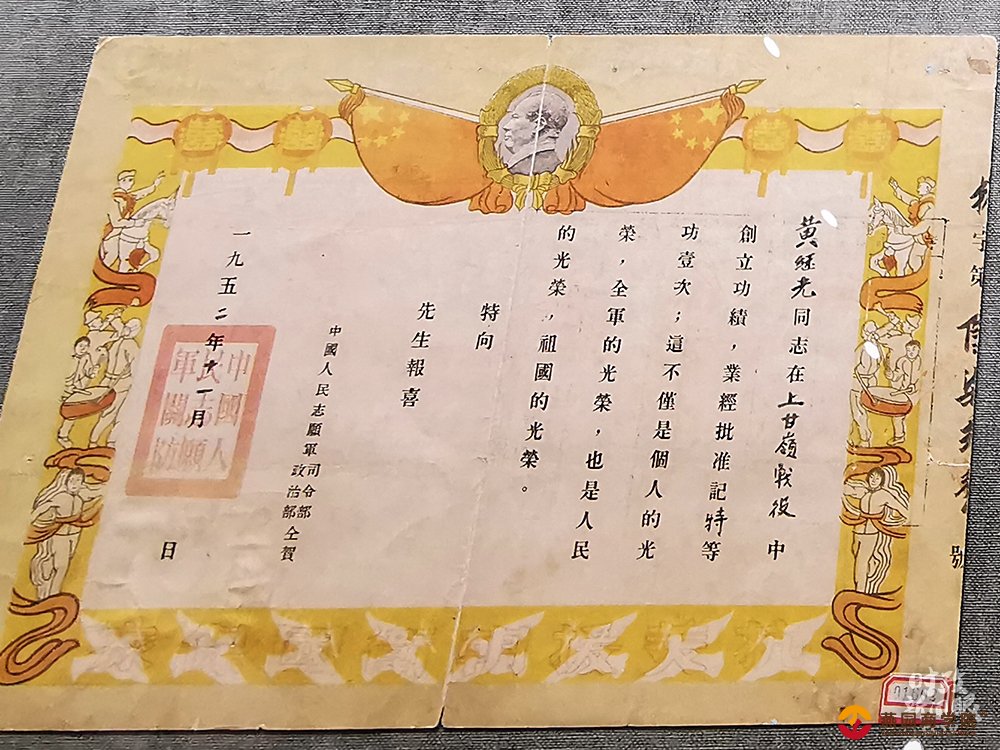 黄继光同志在上甘嶺戰役中
創立功績，業經批准記特等
功壹次；這不僅是個人的光
榮，全軍的光榮，也是人民
的光榮，祖國的光榮。
特向
先生報喜
中國人民志願軍司令部
政治部仝賀
一九五二年十一月 日
中國人
民志願
軍關防
字第
號